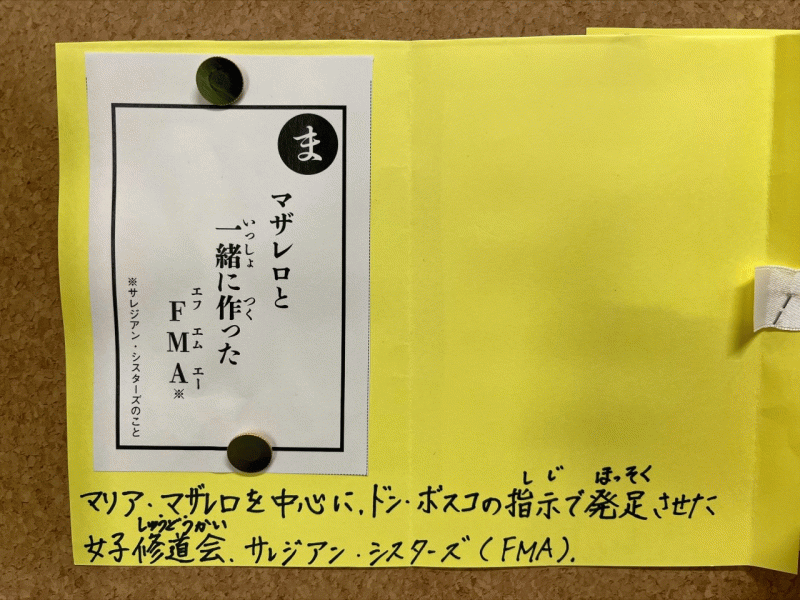 ま
マザレロと
一緒に作った
いっしょ
つく
FMA※
エフ エム エー
※サレジアン・シスターズのこと
マリア・マザレロを中心に、ドン・ボスコの指示で発足させた
しじ
ほっそく
女子修道会、サレジアン・シスターズ(FMA)。
しゅうどうかい